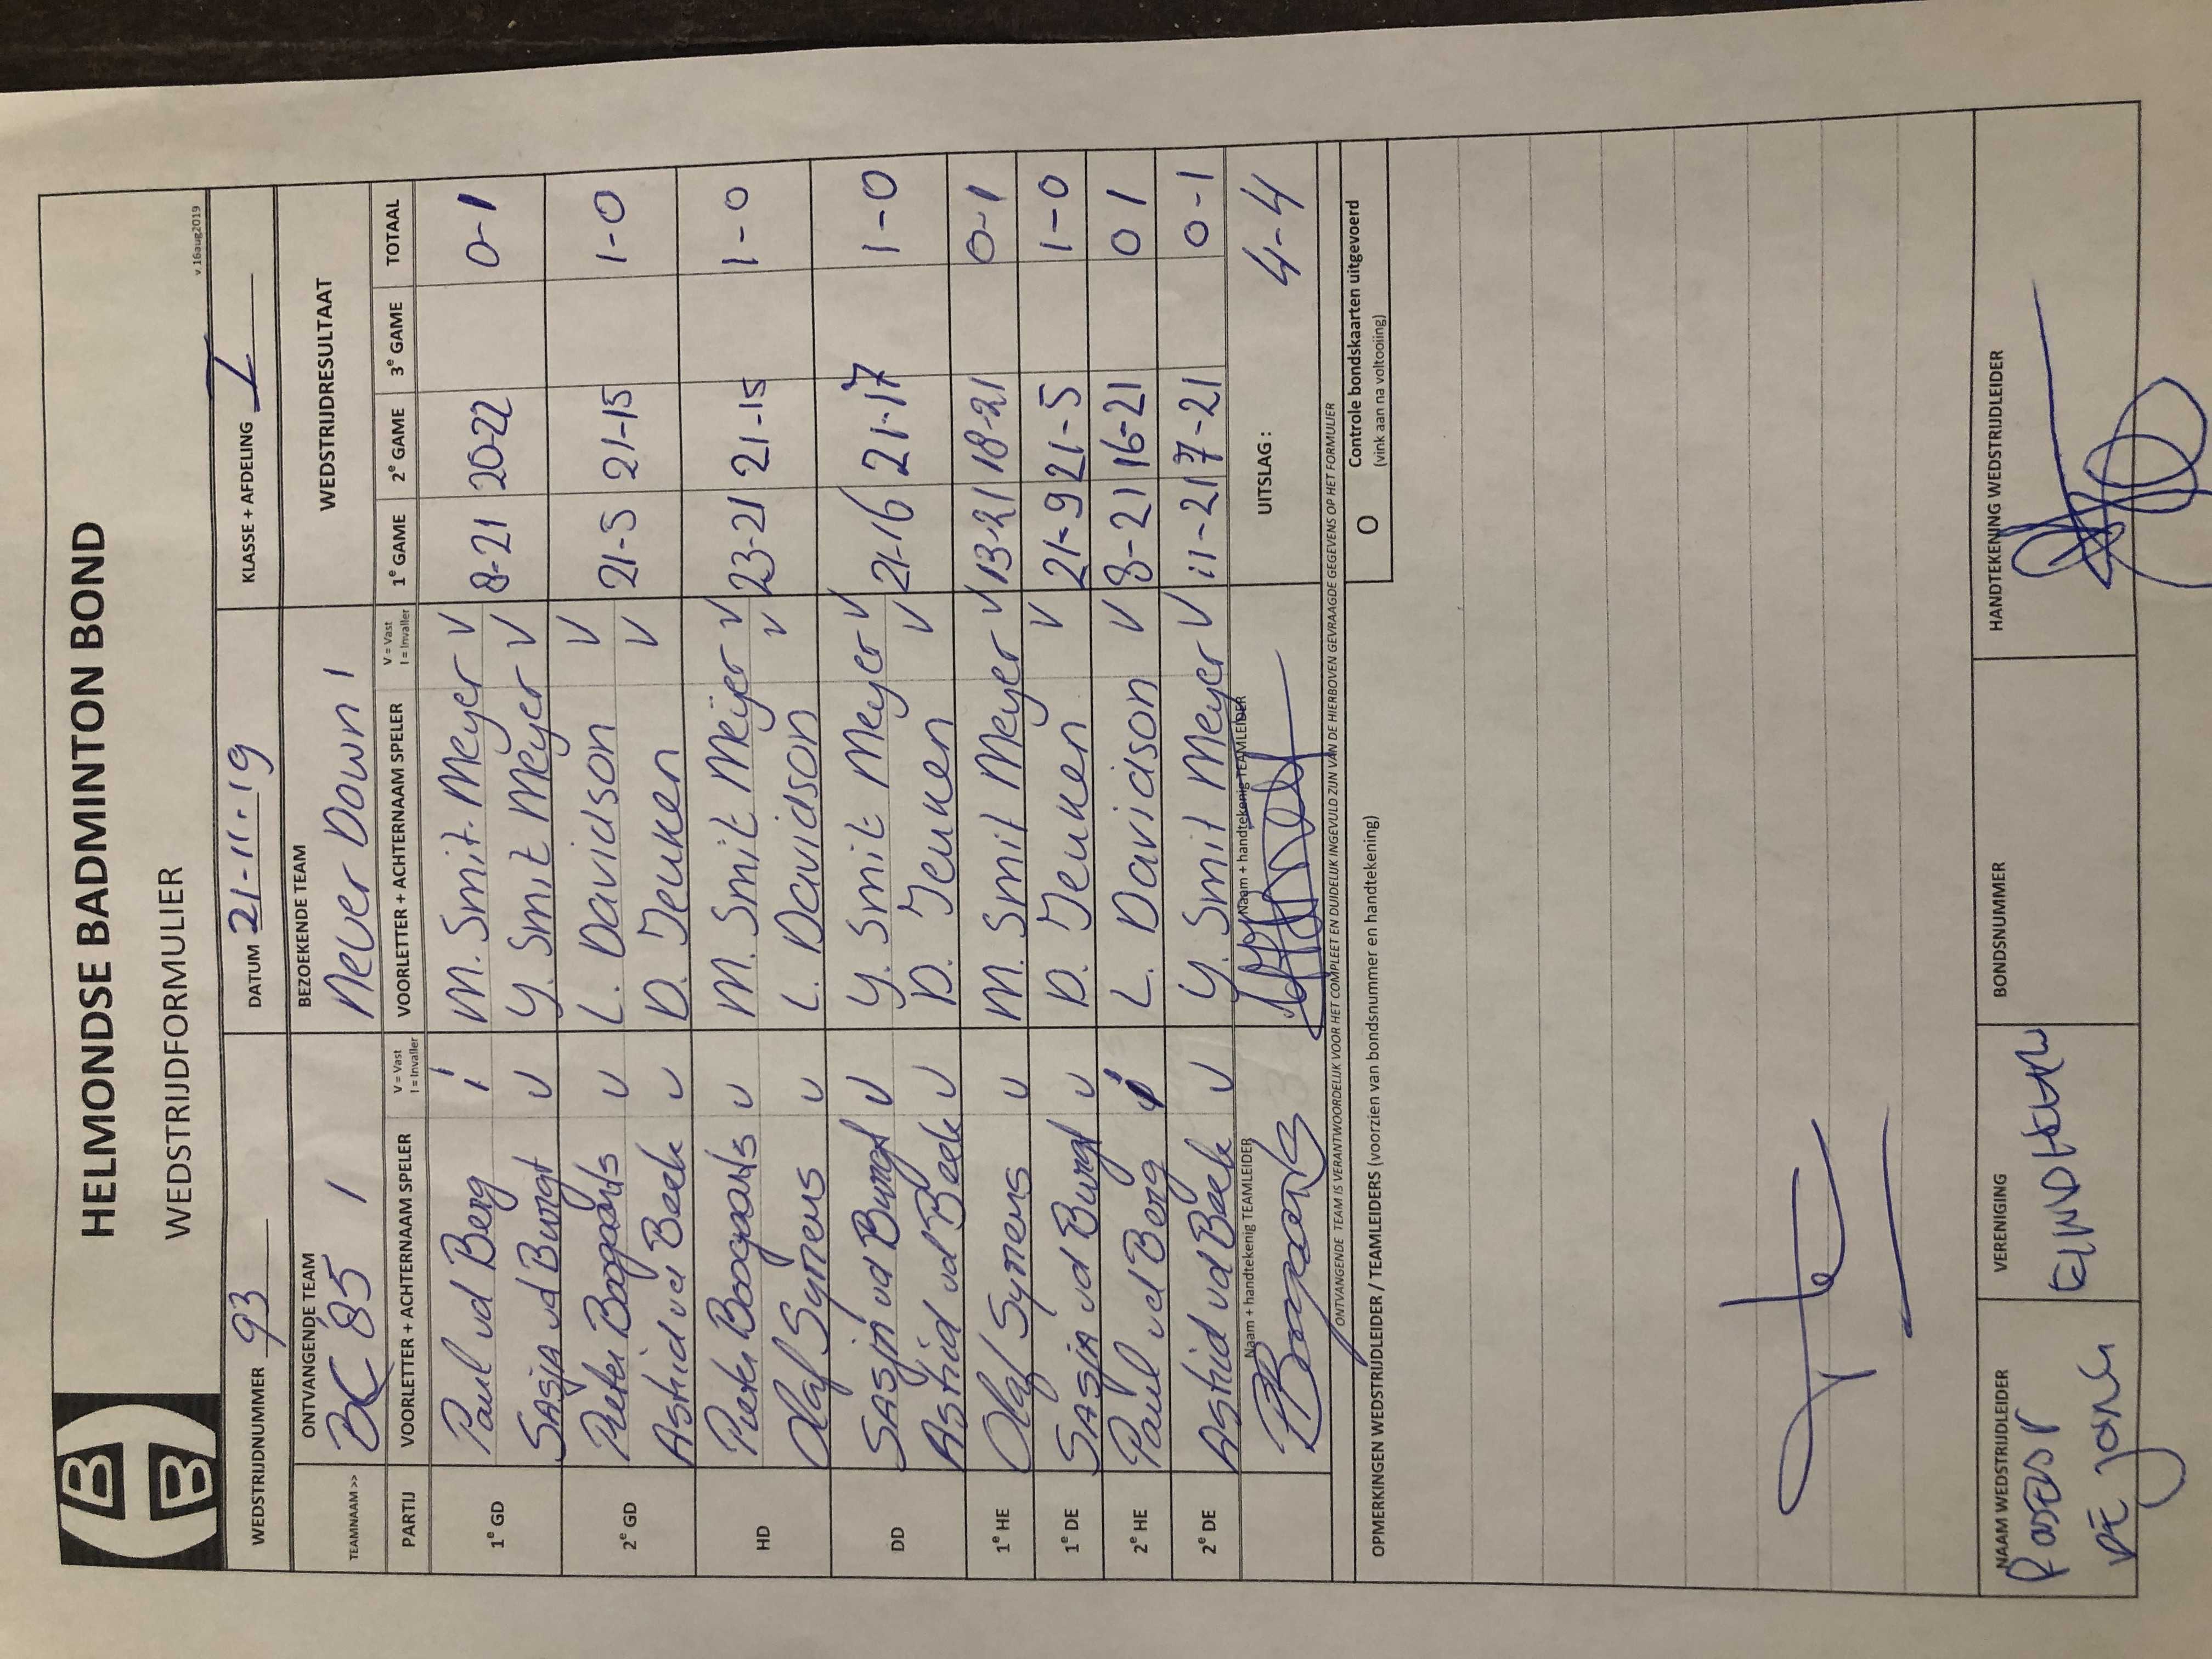 HELMONDSE BADMINTON BOND
WEDSTRIJDFORMULIER
v.16aug2019
WEDSTRIJDNUMMER 93 DATUM 21-11-19 KLASSE + AFDELING 1
TEAMNAAM >> ONTVANGENDE TEAM BC '85 1 BEZOEKENDE TEAM Never Down 1 WEDSTRIJDRESULTAAT
PARTIJ VOORLETTER + ACHTERNAAM SPELER V = Vast I = Invaller VOORLETTER + ACHTERNAAM SPELER V = Vast I = Invaller 1e GAME 2e GAME 3e GAME TOTAAL
1e GD Paul vd Berg i M. Smit-Meyer V 8-21 20-22 0-1
Sasja vd Burgt v Y. Smit Meyer V
2e GD Pieter Boogaarts v L. Davidson V 21-5 21-15 1-0
Astrid vd Beek v D. Jeuken V
HD Pieter Boogaarts v M. Smit Meijer V 23-21 21-15 1-0
Olaf Symens v L. Davidson V
DD Sasja vd Burgt v Y. Smit Meyer V 21-16 21-17 1-0
Astrid vd Beek v D. Jeuken V
1e HE Olaf Symens v M. Smit Meyer V 13-21 18-21 0-1
1e DE Sasja vd Burgt v D. Jeuken V 21-9 21-5 1-0
2e HE Paul vd Berg i L. Davidson V 8-21 16-21 0 1
2e DE Astrid vd Beek v Y. Smit Meyer V 11-21 7-21 0-1
Naam + handtekenig TEAMLEIDER Naam + handtekenig TEAMLEIDER UITSLAG : 4-4
ONTVANGENDE TEAM IS VERANTWOORDELIJK VOOR HET COMPLEET EN DUIDELIJK INGEVULD ZIJN VAN DE HIERBOVEN GEVRAAGDE GEGEVENS OP HET FORMULIER
OPMERKINGEN WEDSTRIJDLEIDER / TEAMLEIDERS (voorzien van bondsnummer en handtekening) O Controle bondskaarten uitgevoerd
(vink aan na voltooiing)
NAAM WEDSTRIJDLEIDER VERENIGING BONDSNUMMER HANDTEKENING WEDSTRIJDLEIDER
DE JONG